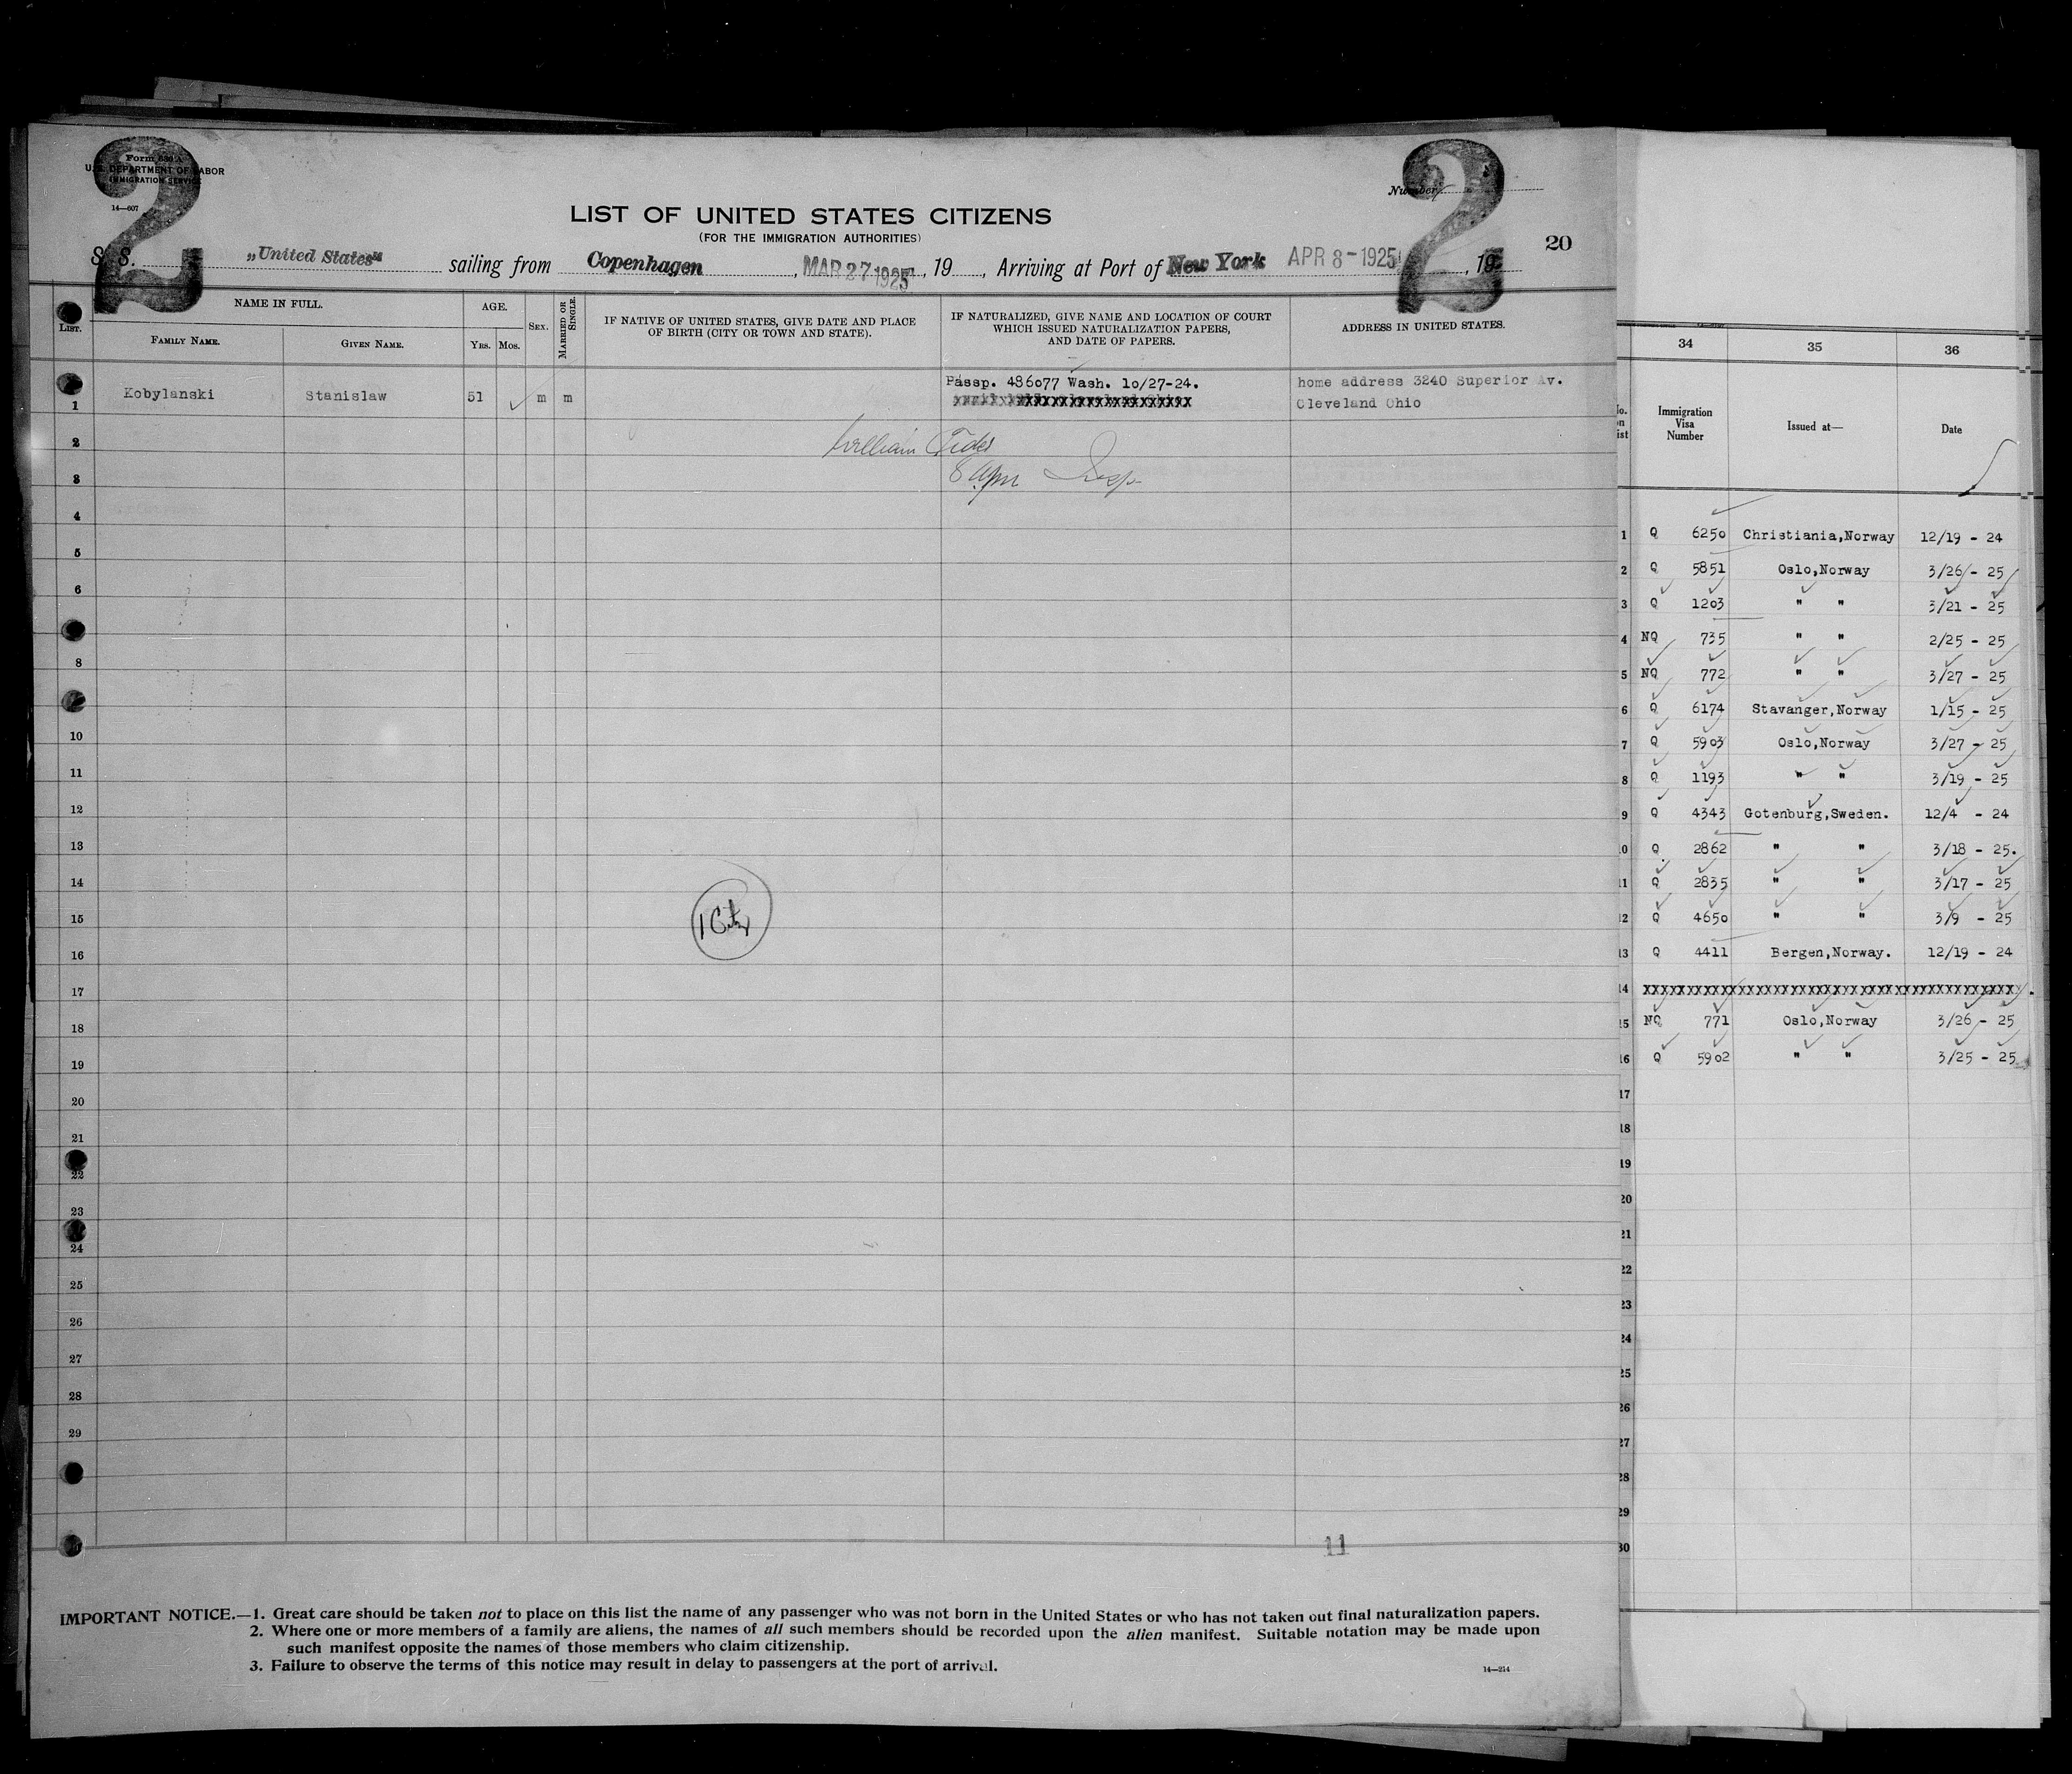 2
2
Form 630 A
U.S. DEPARTMENT OF LABOR
IMMIGRATION SERVICE
14—607
Number
LIST OF UNITED STATES CITIZENS
(FOR THE IMMIGRATION AUTHORITIES)
20
S. S. „United States" sailing from Copenhagen, MAR 27 1925, 19 , Arriving at Port of New York APR 8-1925, 19
LIST.
NAME IN FULL.
FAMILY NAME.
GIVEN NAME.
AGE.
YRS.
MOS.
SEX.
MARRIED OR SINGLE.
IF NATIVE OF UNITED STATES, GIVE DATE AND PLACE
OF BIRTH (CITY OR TOWN AND STATE).
IF NATURALIZED, GIVE NAME AND LOCATION OF COURT
WHICH ISSUED NATURALIZATION PAPERS,
AND DATE OF PAPERS.
ADDRESS IN UNITED STATES.
1 Kobylanski Stanislaw 51 m m Passp. 486077 Wash. 10/27-24. home address 3240 Superior Av.
Cleveland Ohio
2 William
3 Insp
4
5
6
8
10
11
12
13
14
15 1 Cit
16
17
18
19
20
21
22
23
24
25
26
27
28
29
11
IMPORTANT NOTICE.—1. Great care should be taken not to place on this list the name of any passenger who was not born in the United States or who has not taken out final naturalization papers.
2. Where one or more members of a family are aliens, the names of all such members should be recorded upon the alien manifest. Suitable notation may be made upon
such manifest opposite the names of those members who claim citizenship.
3. Failure to observe the terms of this notice may result in delay to passengers at the port of arrival.
14—214
34
35
36
Immigration
Visa
Number
Issued at—
Date
1 Q 6250 Christiania,Norway 12/19 - 24
2 Q 5851 Oslo,Norway 3/26 - 25
3 Q 1203 " " 3/21 - 25
4 NQ 735 " " 2/25 - 25
5 NQ 772 " " 3/27 - 25
6 Q 6174 Stavanger,Norway 1/15 - 25
7 Q 5903 Oslo,Norway 3/27 - 25
8 Q 1193 " " 3/19 - 25
9 Q 4343 Gotenburg,Sweden. 12/4 - 24
10 Q 2862 " " 3/18 - 25.
11 Q 2835 " " 3/17 - 25
12 Q 4650 " " 3/9 - 25
13 Q 4411 Bergen,Norway. 12/19 - 24
14 XXXXXXXXXXXXXXXXXXXXXXXXXXXXXXXXXXXXXX
15 NQ 771 Oslo,Norway 3/26 - 25
16 Q 5902 " " 3/25 - 25
17
18
19
20
21
22
23
24
25
26
27
28
29
30